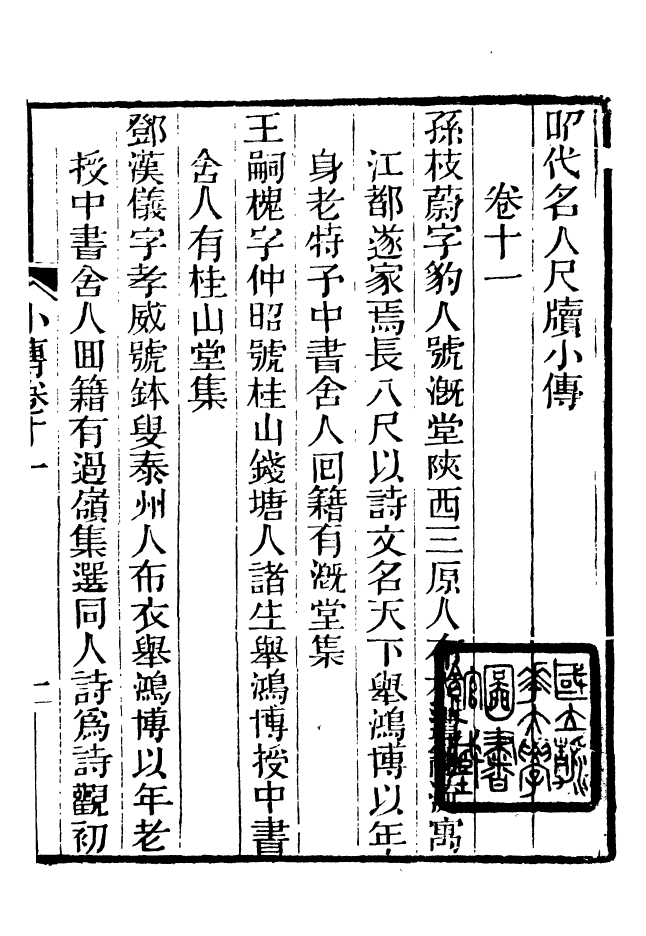 昭代名人尺牘小傳
卷十一
孫枝蔚字豹人號漑堂陝西三原人布寓
江都遂家焉長八尺以詩文名天下舉鴻博以年
身老特予中書舍人回籍有漑堂集
王嗣槐字仲昭號桂山錢塘人諸生舉鴻博授中書
舍人有桂山堂集
鄧漢儀字孝威號鉢叟泰州人布衣舉鴻博以年老
授中書舍人回籍有過嶺集選同人詩爲詩觀初
小傳卷十一
國立清
華大學
圖書
館藏